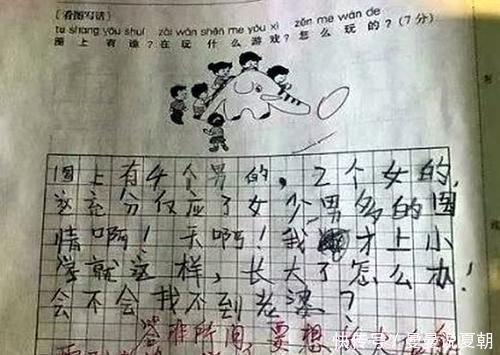 〔看图写话〕
tu shang yǒu shuí zài wán shén me yóu xì zěn me wán de
图 上 有 谁？在 玩 什 么 游 戏？怎 么 玩 的？(7分)
图上有4个男的，2个女的，
这充分仅应了女少男多的国
情啊！天啊！我才上小
学就这样，长大了怎么办！
会不会找不到老婆？
答非所问，要想
快传号/曼曼说夏朝